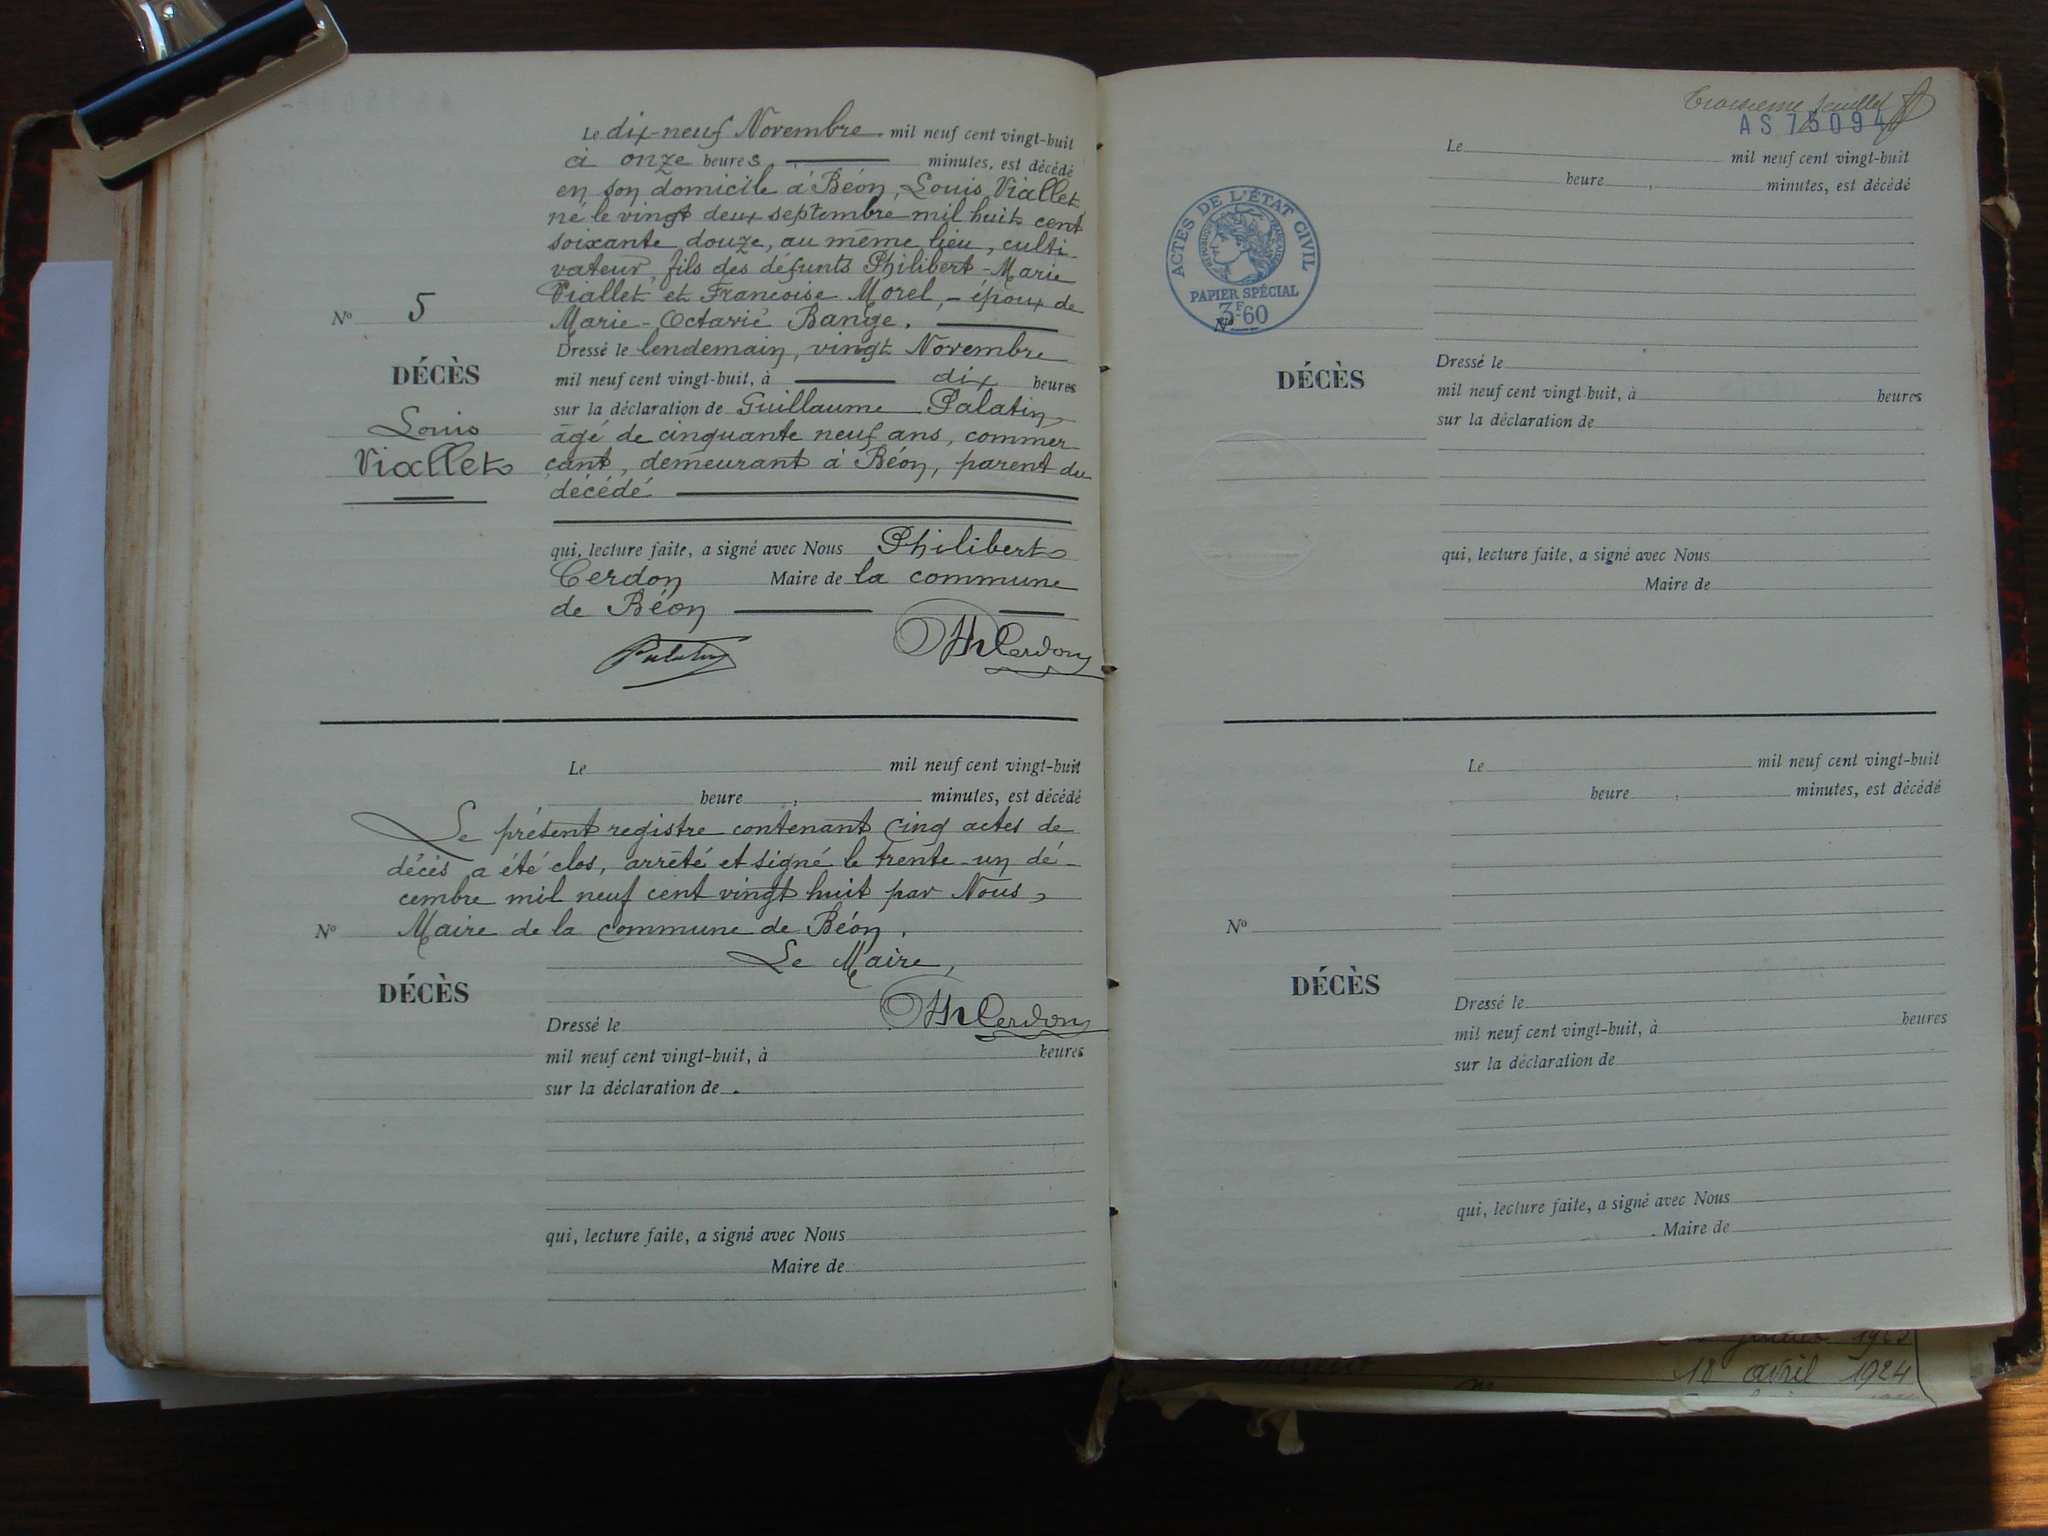 Le dix-neuf Novembre mil neuf cent vingt-huit
à onze heures, minutes, est décédé
en son domicile à Béon, Louis Viallet
né le vingt deux septembre mil huit cent
soixante douze, au même lieu, culti-
vateur, fils des défunts Philibert-Marie
Viallet et Françoise Morel, - époux de
Marie-Octavie Bange.
Nº 5
DÉCÈS
Louis
Viallet
Dressé le lendemain, vingt Novembre
mil neuf cent vingt-huit, à dix heures
sur la déclaration de Guillaume Palatin,
âgé de cinquante neuf ans, commer-
çant, demeurant à Béon, parent du
décédé
qui, lecture faite, a signé avec Nous Philibert
Cerdon Maire de la commune
de Béon
Palatin
Ph Cerdon
Le mil neuf cent vingt-huit
heure , minutes, est décédé
Le présent registre contenant cinq actes de
décès a été clos, arrêté et signé le trente-un dé-
cembre mil neuf cent vingt huit par Nous,
Nº Maire de la commune de Béon.
Le Maire,
DÉCÈS
Ph Cerdon
Dressé le
mil neuf cent vingt-huit, à heures
sur la déclaration de
qui, lecture faite, a signé avec Nous
Maire de
Troisième feuillet
AS 75094
Le mil neuf cent vingt-huit
heure , minutes, est décédé
ACTES DE L'ÉTAT CIVIL
RÉPUBLIQUE FRANÇAISE
PAPIER SPÉCIAL
3F.60
Nº
DÉCÈS
Dressé le
mil neuf cent vingt huit, à heures
sur la déclaration de
qui, lecture faite, a signé avec Nous
Maire de
Le mil neuf cent vingt-huit
heure , minutes, est décédé
Nº
DÉCÈS
Dressé le
mil neuf cent vingt-huit, à heures
sur la déclaration de
qui, lecture faite, a signé avec Nous
Maire de
18 avril 1924